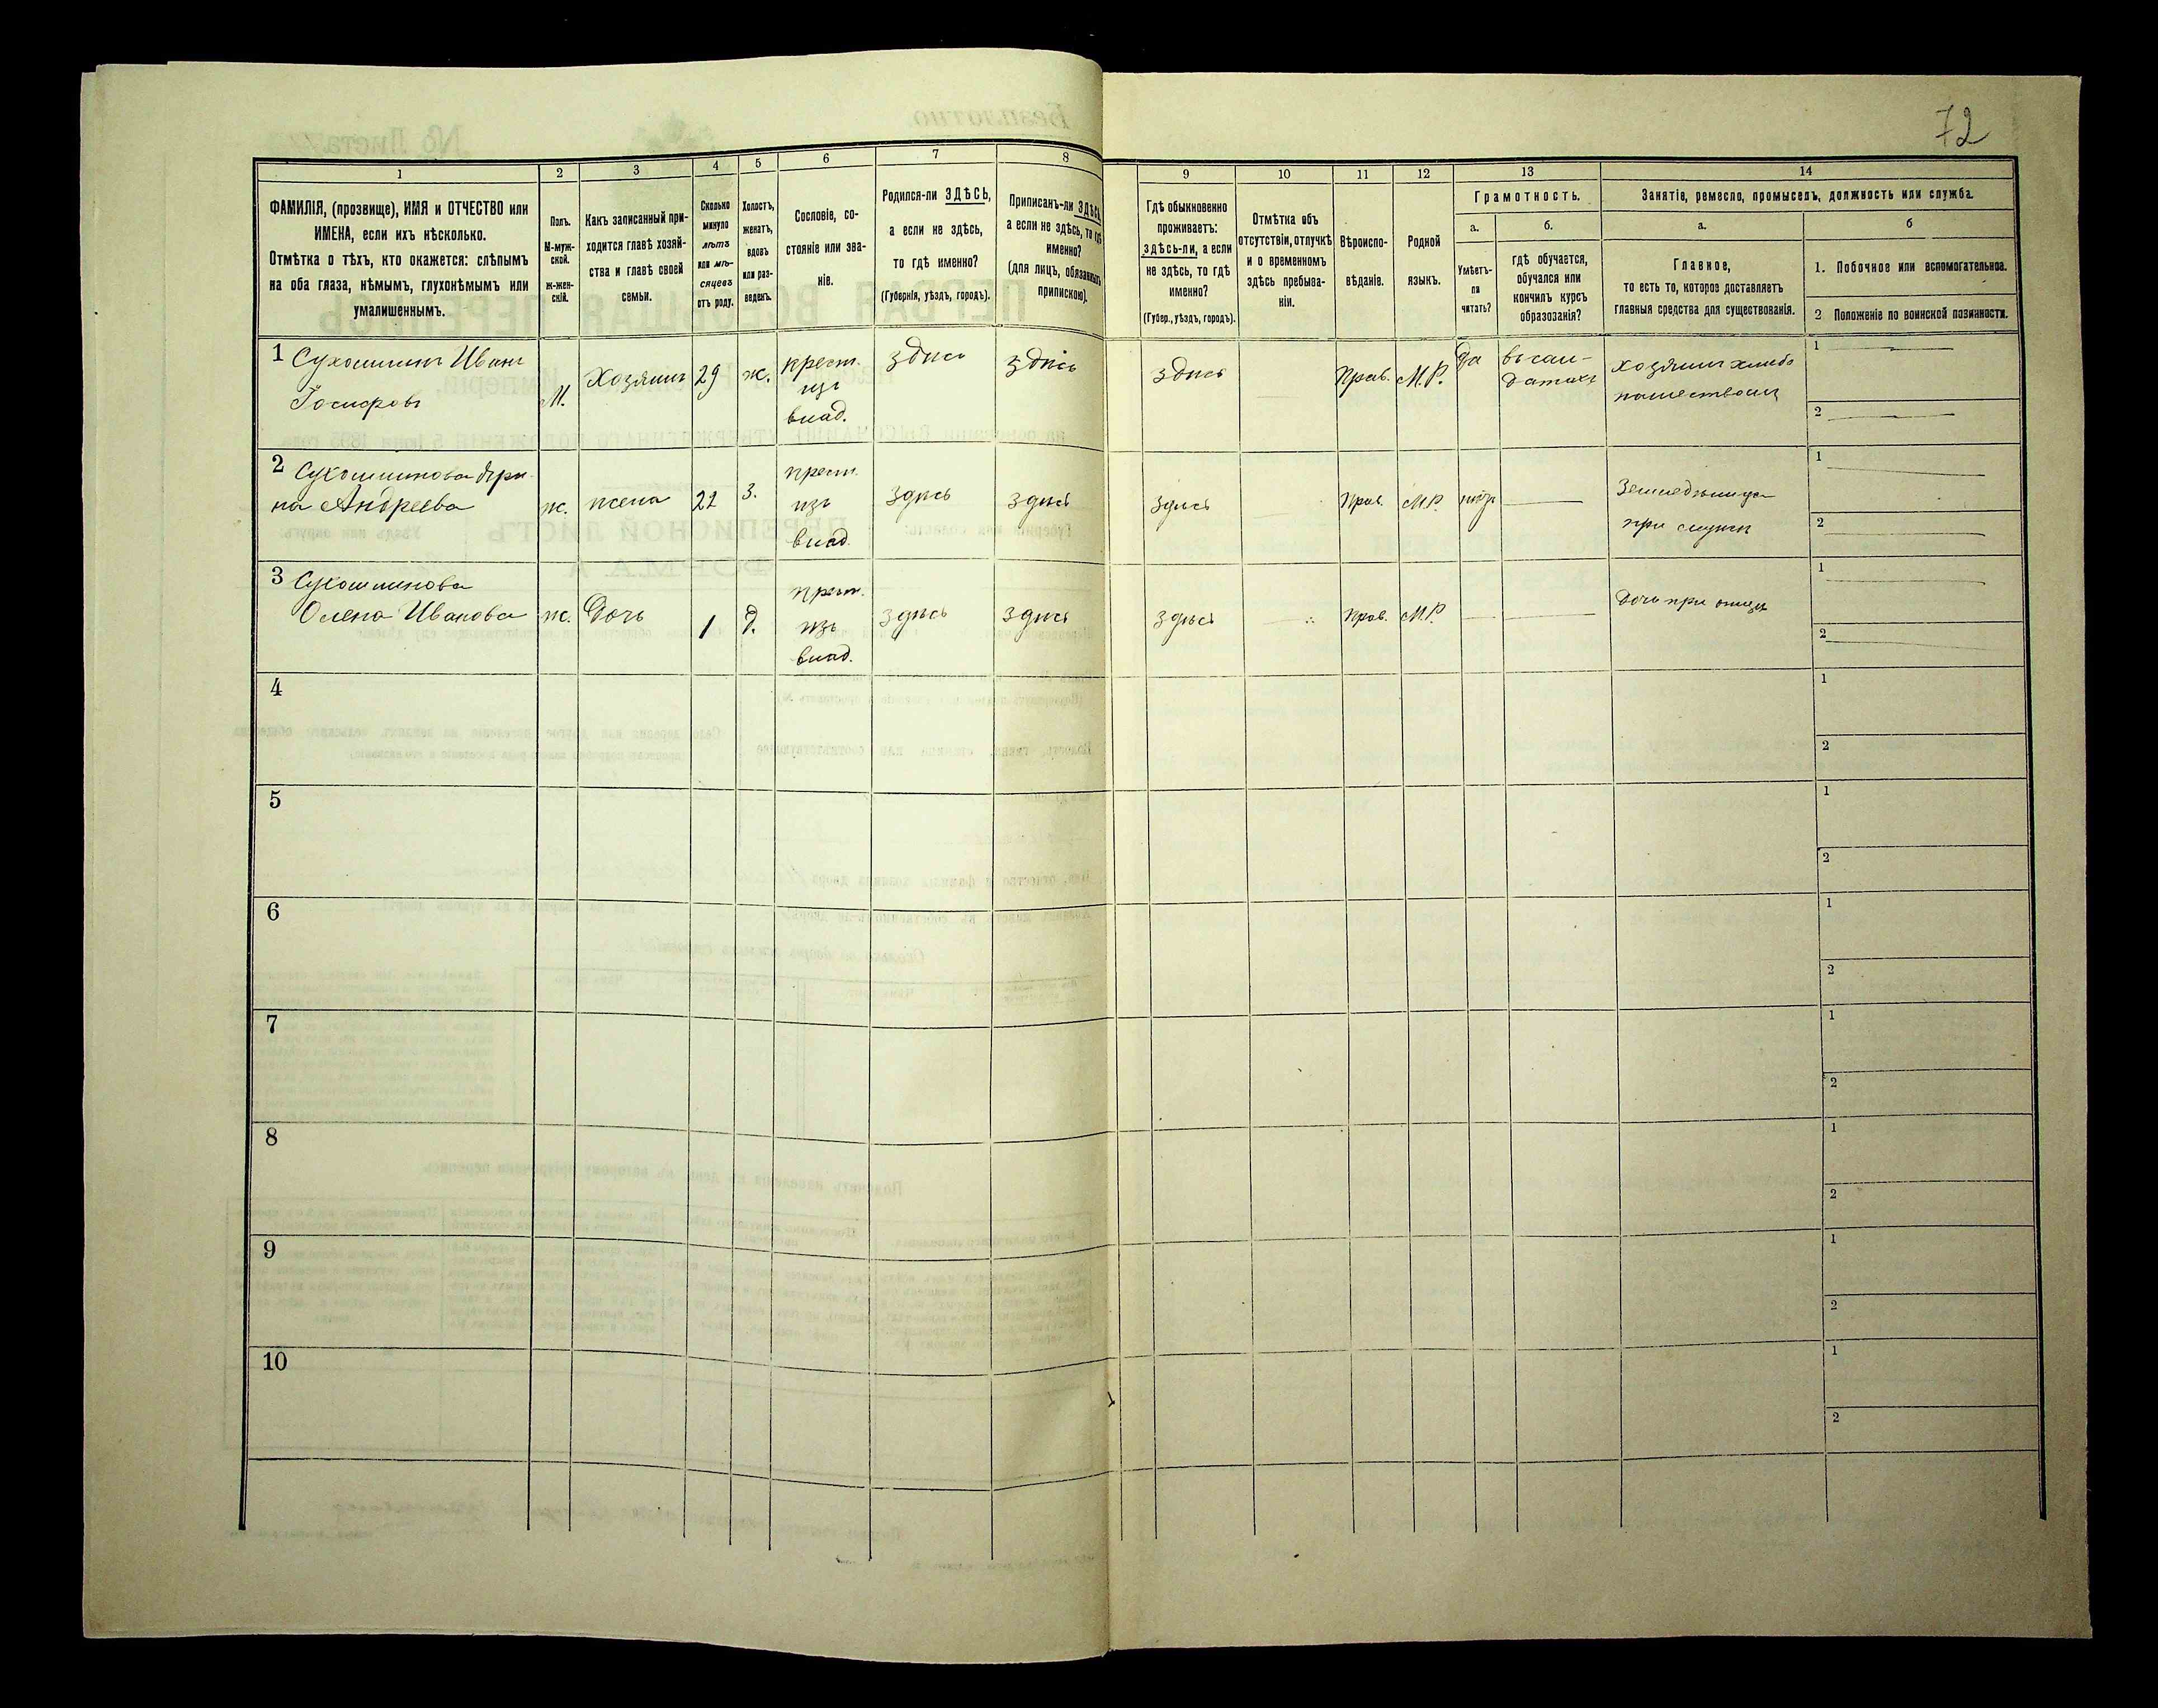 72
1
2
3
4
5
6
7
8
9
10
11
12
13
14
ФАМИЛІЯ, (прозвище), ИМЯ и ОТЧЕСТВО или
ИМЕНА, если ихъ нѣсколько.
Отмѣтка о тѣхъ, кто окажется: слѣпымъ
на оба глаза, нѣмымъ, глухонѣмымъ или
умалишеннымъ.
Полъ.
М-муж-
ской.
ж-жен-
скій.
Какъ записанный при-
ходится главѣ хозяй-
ства и главѣ своей
семьи.
Сколько
минуло
лѣтъ
или мѣ-
сяцевъ
отъ роду.
Холостъ,
женатъ,
вдовъ
или раз-
веденъ.
Сословіе, со-
стояніе или зва-
ніе.
Родился-ли ЗДѢСЬ,
а если не здѣсь,
то гдѣ именно?
(Губернія, уѣздъ, городъ).
Приписанъ-ли ЗДѢСЬ,
а если не здѣсь, то гдѣ
именно?
(для лицъ, обязанныхъ
припискою).
Гдѣ обыкновенно
проживаетъ:
здѣсь-ли, а если
не здѣсь, то гдѣ
именно?
(Губер., уѣздъ, городъ).
Отмѣтка объ
отсутствіи, отлучкѣ
и о временномъ
здѣсь пребыва-
ніи.
Вѣроиспо-
вѣданіе.
Родной
языкъ.
Грамотность.
а.
Умѣетъ-
ли
читать?
б.
гдѣ обучается,
обучался или
кончилъ курсъ
образованія?
Занятіе, ремесло, промыселъ, должность или служба.
а.
Главное,
то есть то, которое доставляетъ
главныя средства для существованія.
б
1. Побочное или вспомогательное.
2 Положеніе по воинской повинности.
1 Сухошлинъ Иванъ
Іосифовъ
М.
Хозяинъ
29
ж.
крест.
изъ
влад.
здѣсь
здѣсь
здѣсь
Прав.
М.Р.
да
въ сол-
датахъ
хозяинъ хлѣбо
1
2
2 Сухошлинова Ири-
на Андреева
ж.
жена
22
з.
крест.
изъ
влад.
здѣсь
здѣсь
здѣсь
Прав.
М.Р.
нѣтъ
Земледѣлица
при мужѣ
1
2
3 Сухошлинова
Олена Иванова
ж.
Дочь
1
д.
крест.
изъ
влад.
здѣсь
здѣсь
здѣсь
Прав.
М.Р.
Дочь при отцѣ
1
2
4
1
2
5
1
2
6
1
2
7
1
2
8
1
2
9
1
2
10
1
2